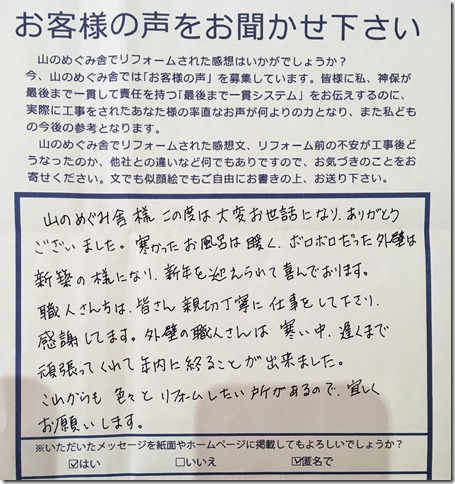 お客様の声をお聞かせ下さい
山のめぐみ舎でリフォームされた感想はいかがでしょうか？
今、山のめぐみ舎では「お客様の声」を募集しています。皆様に私、神保が
最後まで一貫して責任を持つ「最後まで一貫システム」をお伝えするのに、
実際に工事をされたあなた様の率直なお声が何よりの力となり、また私ども
の今後の参考となります。
山のめぐみ舎でリフォームされた感想文、リフォーム前の不安が工事後ど
うなったのか、他社との違いなど何でもありですので、お気づきのことをお
寄せください。文でも似顔絵でもご自由にお書きの上、お送り下さい。
山のめぐみ舎様 この度は大変お世話になり、ありがとう
ございました。寒かったお風呂は暖く、ボロボロだった外壁は
新築の様になり、新年を迎えられて喜んでおります。
職人さん方は、皆さん親切丁寧に仕事をして下さり、
感謝してます。外壁の職人さんは寒い中、遅くまで
頑張ってくれて年内に終ることが出来ました。
これからも色々とリフォームしたい所があるので、宜しく
お願いします。
※いただいたメッセージを紙面やホームページに掲載してもよろしいでしょうか？
☑はい　□いいえ　☑匿名で